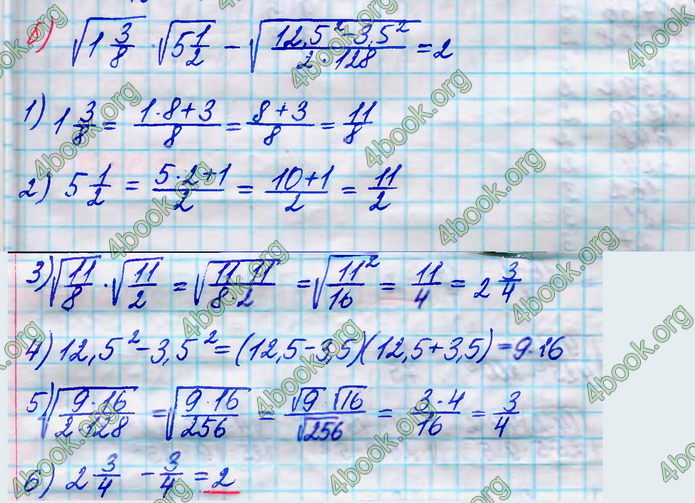 б) √(1 3/8) · √(5 1/2) − √((12,5² − 3,5²)/(2 · 128)) = 2
1) 1 3/8 = (1·8+3)/8 = (8+3)/8 = 11/8
2) 5 1/2 = (5·2+1)/2 = (10+1)/2 = 11/2
3) √(11/8) · √(11/2) = √((11 · 11)/(8 · 2)) = √(11²/16) = 11/4 = 2 3/4
4) 12,5² − 3,5² = (12,5 − 3,5)(12,5 + 3,5) = 9 · 16
5) √((9 · 16)/(2 · 128)) = √((9 · 16)/256) = (√9 · √16)/√256 = (3 · 4)/16 = 3/4
6) 2 3/4 − 3/4 = 2
4book.org